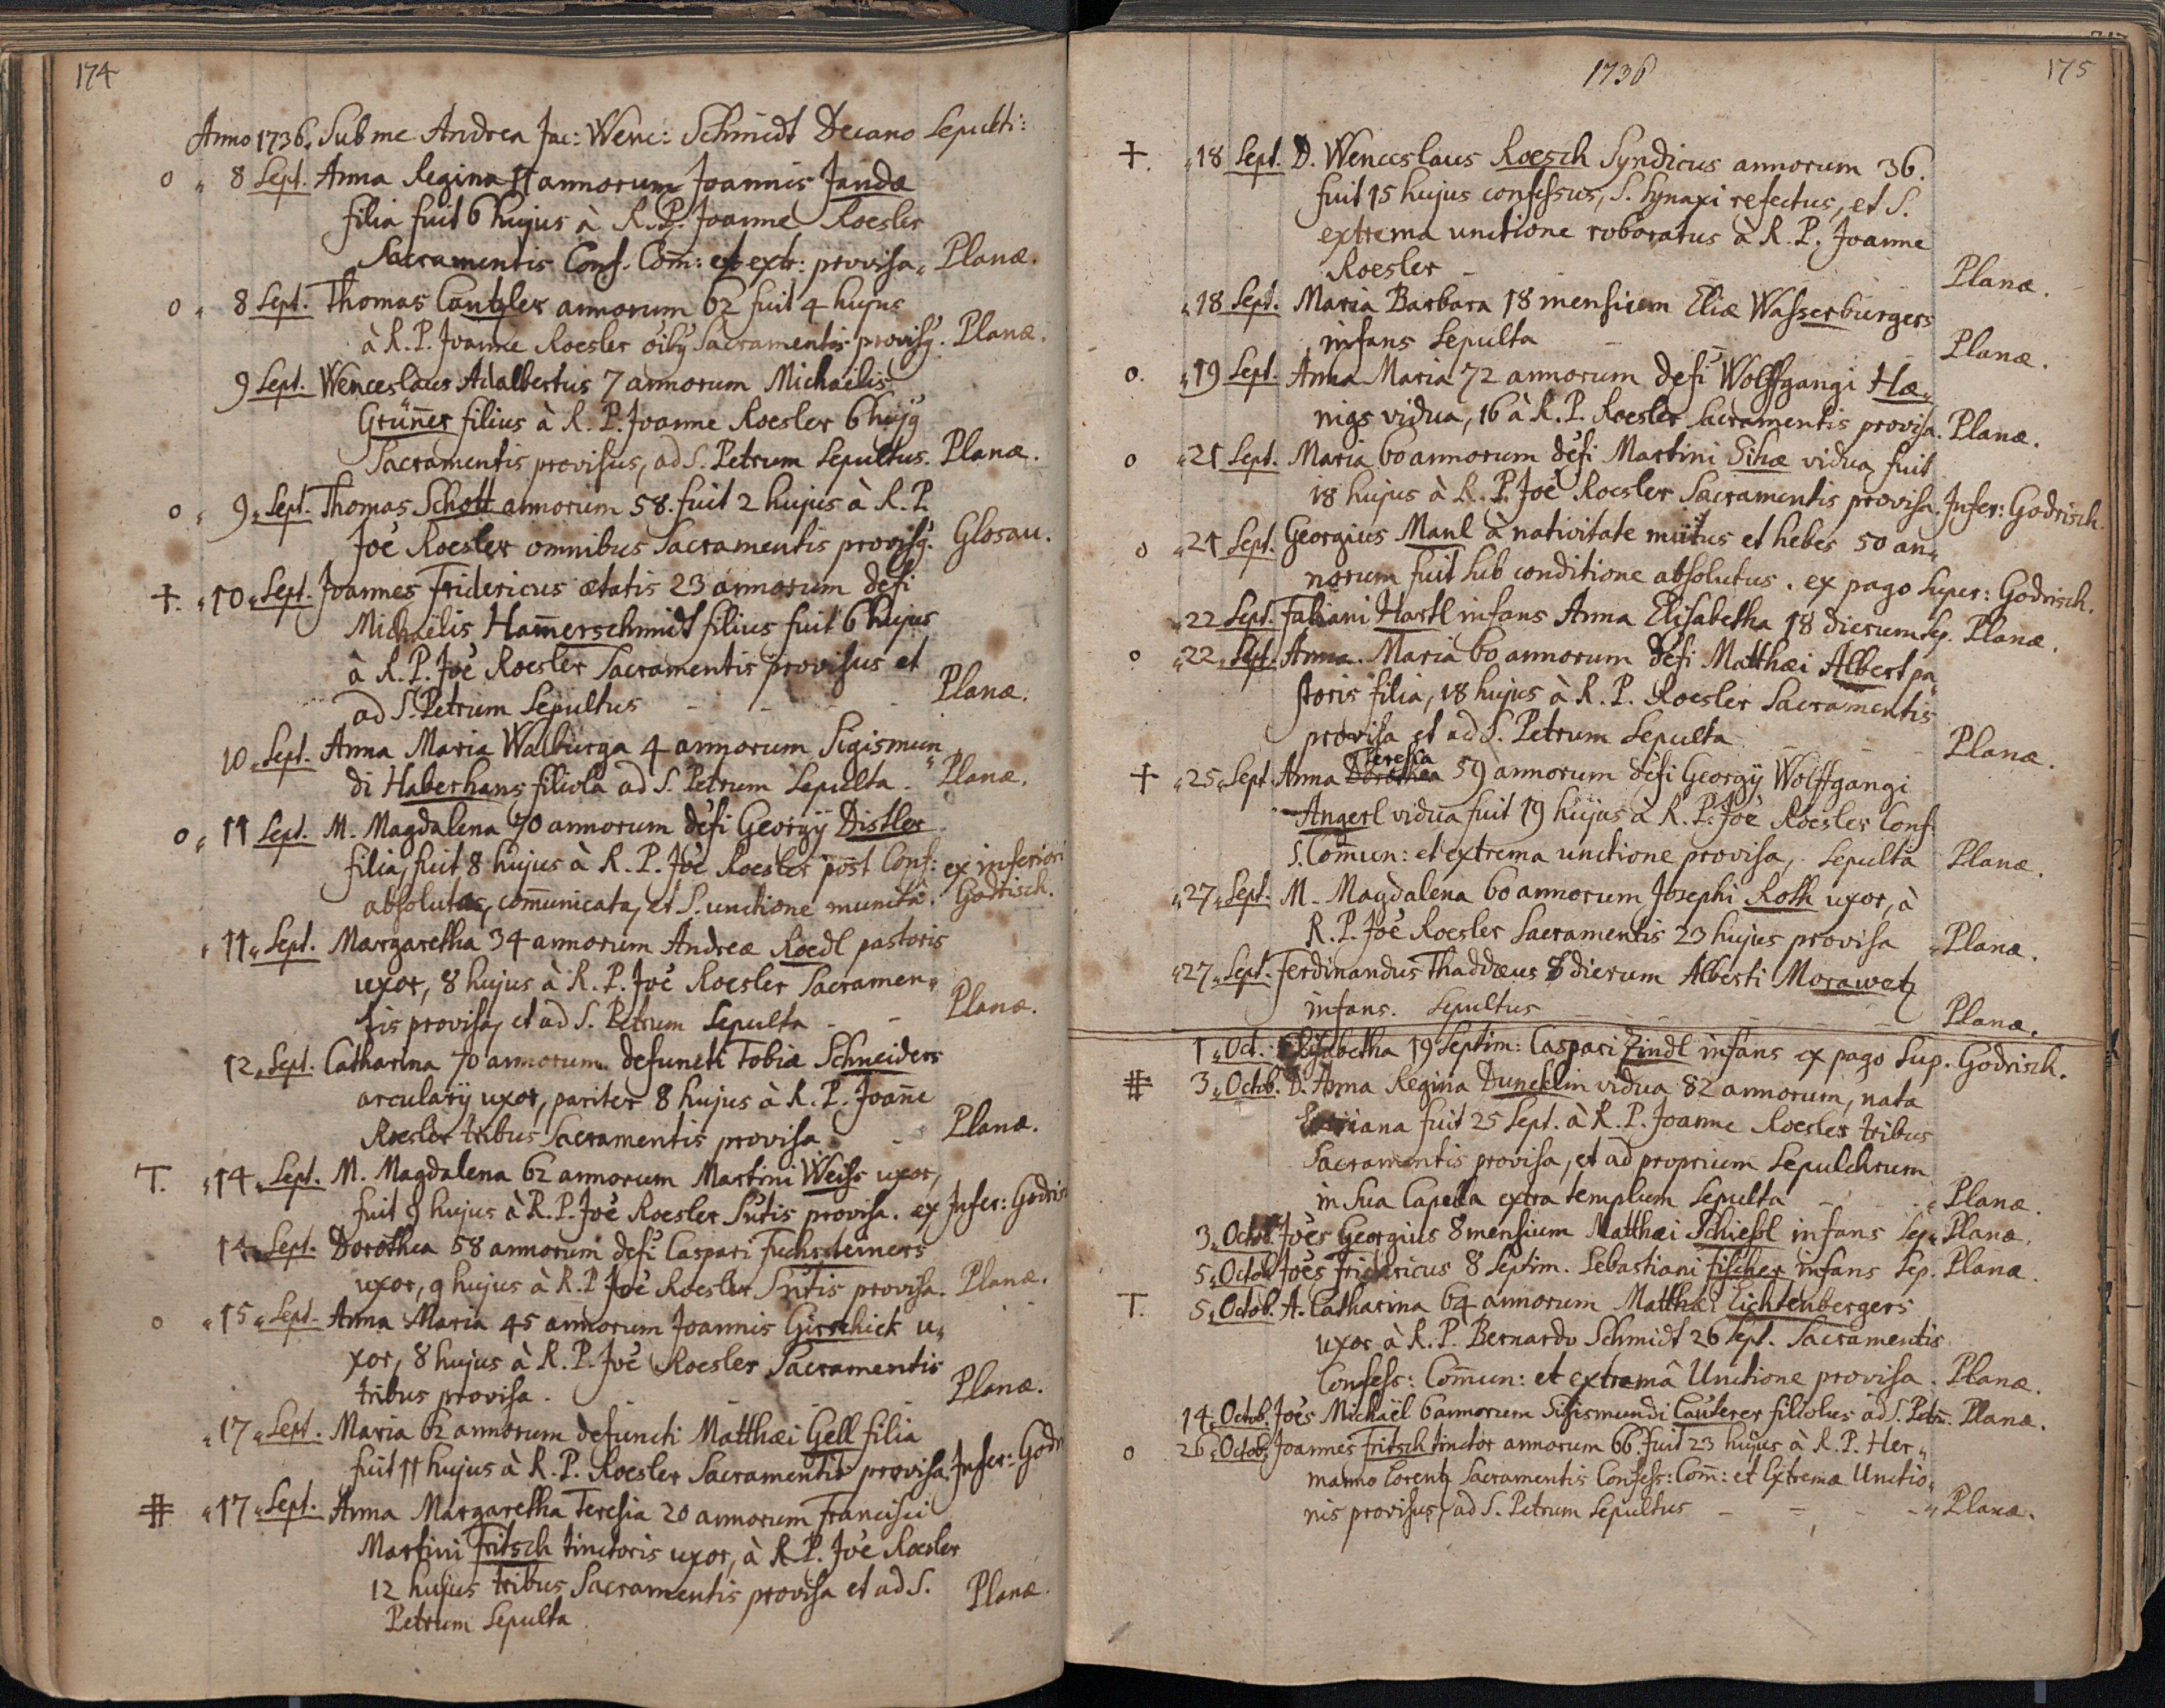 174
Anno 1736. Sub me Andrea Jac: Wenc: Schmidt Decano Sepulti:
o „ 8 Sept. Anna Regina 11 annorum Joannis Janda
filia fuit 6 hujus à R. P. Joanne Roesler
Sacramentis Conf. Com̄: et extr: provisa„ Planæ.
o „ 8 Sept. Thomas Cantzler annorum 62 fuit 4 hujus
à R. P. Joanne Roesler oïbꝰ Sacramentis provisꝰ. Planæ.
9 Sept. Wenceslaus Adalbertus 7 annorum Michaëlis
Grün̄er filius à R. P. Joanne Roesler 6 hujꝰ
Sacramentis provisus, ad S. Petrum Sepultus. Planæ.
o „ 9„ Sept. Thomas Schott annorum 58. fuit 2 hujus à R. P.
Joë Roesler omnibus Sacramentis provisꝰ. Glosau.
+. „10„ Sept. Joannes Fridericus ætatis 23 annorum defi
Michaëlis Ham̄erschmidt filius fuit 6 hujus
à R. P. Joë Roesler Sacramentis provisus et
ad S. Petrum Sepultus - - - - Planæ.
10„ Sept. Anna Maria Walburga 4 annorum Sigismun„
di Haberhans filiola ad S. Petrum Sepulta. Planæ.
o „ 11 Sept. M. Magdalena 70 annorum defi Georgÿ Distler
filia, fuit 8 hujus à R. P. Joë Roesler post Conf: ex inferiori
absoluta, com̄unicata, et S. unctione munita. Godrisch.
„ 11„ Sept. Margaretha 34 annorum Andreæ Roedl pastoris
uxor, 8 hujus à R. P. Joë Roesler Sacramen„
tis provisa, et ad S. Petrum Sepulta - - Planæ.
12„ Sept. Catharina 70 annorum defuncti Tobiæ Schneiders
arcularÿ uxor, pariter 8 hujus à R. P. Joan̄e
Roesler tribus Sacramentis provisa - - Planæ.
T. „14„ Sept. M. Magdalena 62 annorum Martini Weiss uxor,
fuit 8 hujus à R. P. Joë Roesler Sutis provisa. ex Infer: Godris
14„ Sept. Dorothea 58 annorum defi Caspari Fuchssteiners
uxor, 9 hujus à R. P. Joë Roesler Sutis provisa. Planæ.
o „15„ Sept. Anna Maria 45 annorum Joannis Girschick u„
xor, 8 hujus à R. P. Joë Roesler Sacramentis
tribus provisa. - - - Planæ.
„17„ Sept. Maria 62 annorum defuncti Matthæi Gell filia
fuit 11 hujus à R. P. Roesler Sacramentis provisa. Infer: Godr
# „17„ Sept. Anna Margaretha Teresia 20 annorum Francisci
Martini Fritsch tinctoris uxor, à R. P. Joë Roesler
12 hujus tribus Sacramentis provisa et ad S.
Petrum Sepulta Planæ.
1736 175
+. „18 Sept. D. Wenceslaus Roesch Syndicus annorum 36.
fuit 15 hujus confessus, S. Synaxi refectus, et S.
extrema unctione roboratus à R. P. Joanne
Roesler - - - Planæ.
„18 Sept. Maria Barbara 18 mensium Eliæ Wasserburgers
infans Sepulta - - - Planæ.
o. „19 Sept. Anna Maria 72 annorum defi Wolffgangi Hæ„
nigs vidua, 16 à R. P. Roesler Sacramentis provisa. Planæ.
o „21 Sept. Maria 60 annorum defi Martini Sihæ vidua fuit
18 hujus à R. P. Joë Roesler Sacramentis provisa. Infer: Godrisch.
o „21 Sept. Georgius Manl à nativitate mutus et hebes 50 an„
norum fuit sub conditione absolutus. ex pago Super: Godrisch.
„22 Sept. Fabiani Hartl infans Anna Elisabetha 18 dierum Sep. Planæ.
o „22„ Sept. Anna Maria 60 annorum defi Matthæi Albert pa„
storis filia, 18 hujus à R. P. Roesler Sacramentis
provisa et ad S. Petrum Sepulta - - - Planæ.
Teresia
+ „25„ Sept. Anna Dorothea 59 annorum defi Georgÿ Wolffgangi
Angerl vidua fuit 19 hujus à R. P. Joë Roesler Conf:
S. Com̄un: et extrema unctione provisa, Sepulta Planæ.
„27„ Sept. M. Magdalena 60 annorum Josephi Roth uxor, à
R. P. Joë Roesler Sacramentis 23 hujus provisa „ Planæ.
„27„ Sept. Ferdinandus Thaddæus 8 dierum Alberti Morawetz
infans. Sepultus - - - Planæ.
1„ Oct. Elisabetha 19 Septim: Caspari Zindl infans ex pago Sup. Godrisch.
# 3„ Octob. D. Anna Regina Duncklin vidua 82 annorum, nata
fuit 25 Sept. à R. P. Joanne Roesler tribus
Sacramentis provisa, et ad proprium Sepulchrum
in sua Capella extra templum Sepulta - - - „ Planæ.
3„ Octob. Joës Georgius 8 mensium Matthæi Schiessl infans Sep„ Planæ.
5„ Octob. Joës Fridericus 8 Septim. Sebastiani Fischer infans Sep. Planæ.
T. 5„ Octob. A. Catharina 64 annorum Matthæi Lichtenbergers
uxor à R. P. Bernardo Schmidt 26 Sept. Sacramentis
Confess: Com̄un: et extremâ Unctione provisa. Planæ.
14„ Octob. Joës Michaël 6 annorum Sigismundi Cauterer filiolus ad S. Petru. Planæ.
o 26„ Octob. Joannes Fritsch tinctor annorum 66. fuit 23 hujus à R. P. Her„
manno Lorentz Sacramentis Confess: Com̄: et Extremæ Unctio„
nis provisus, ad S. Petrum Sepultus - - - „ Planæ.